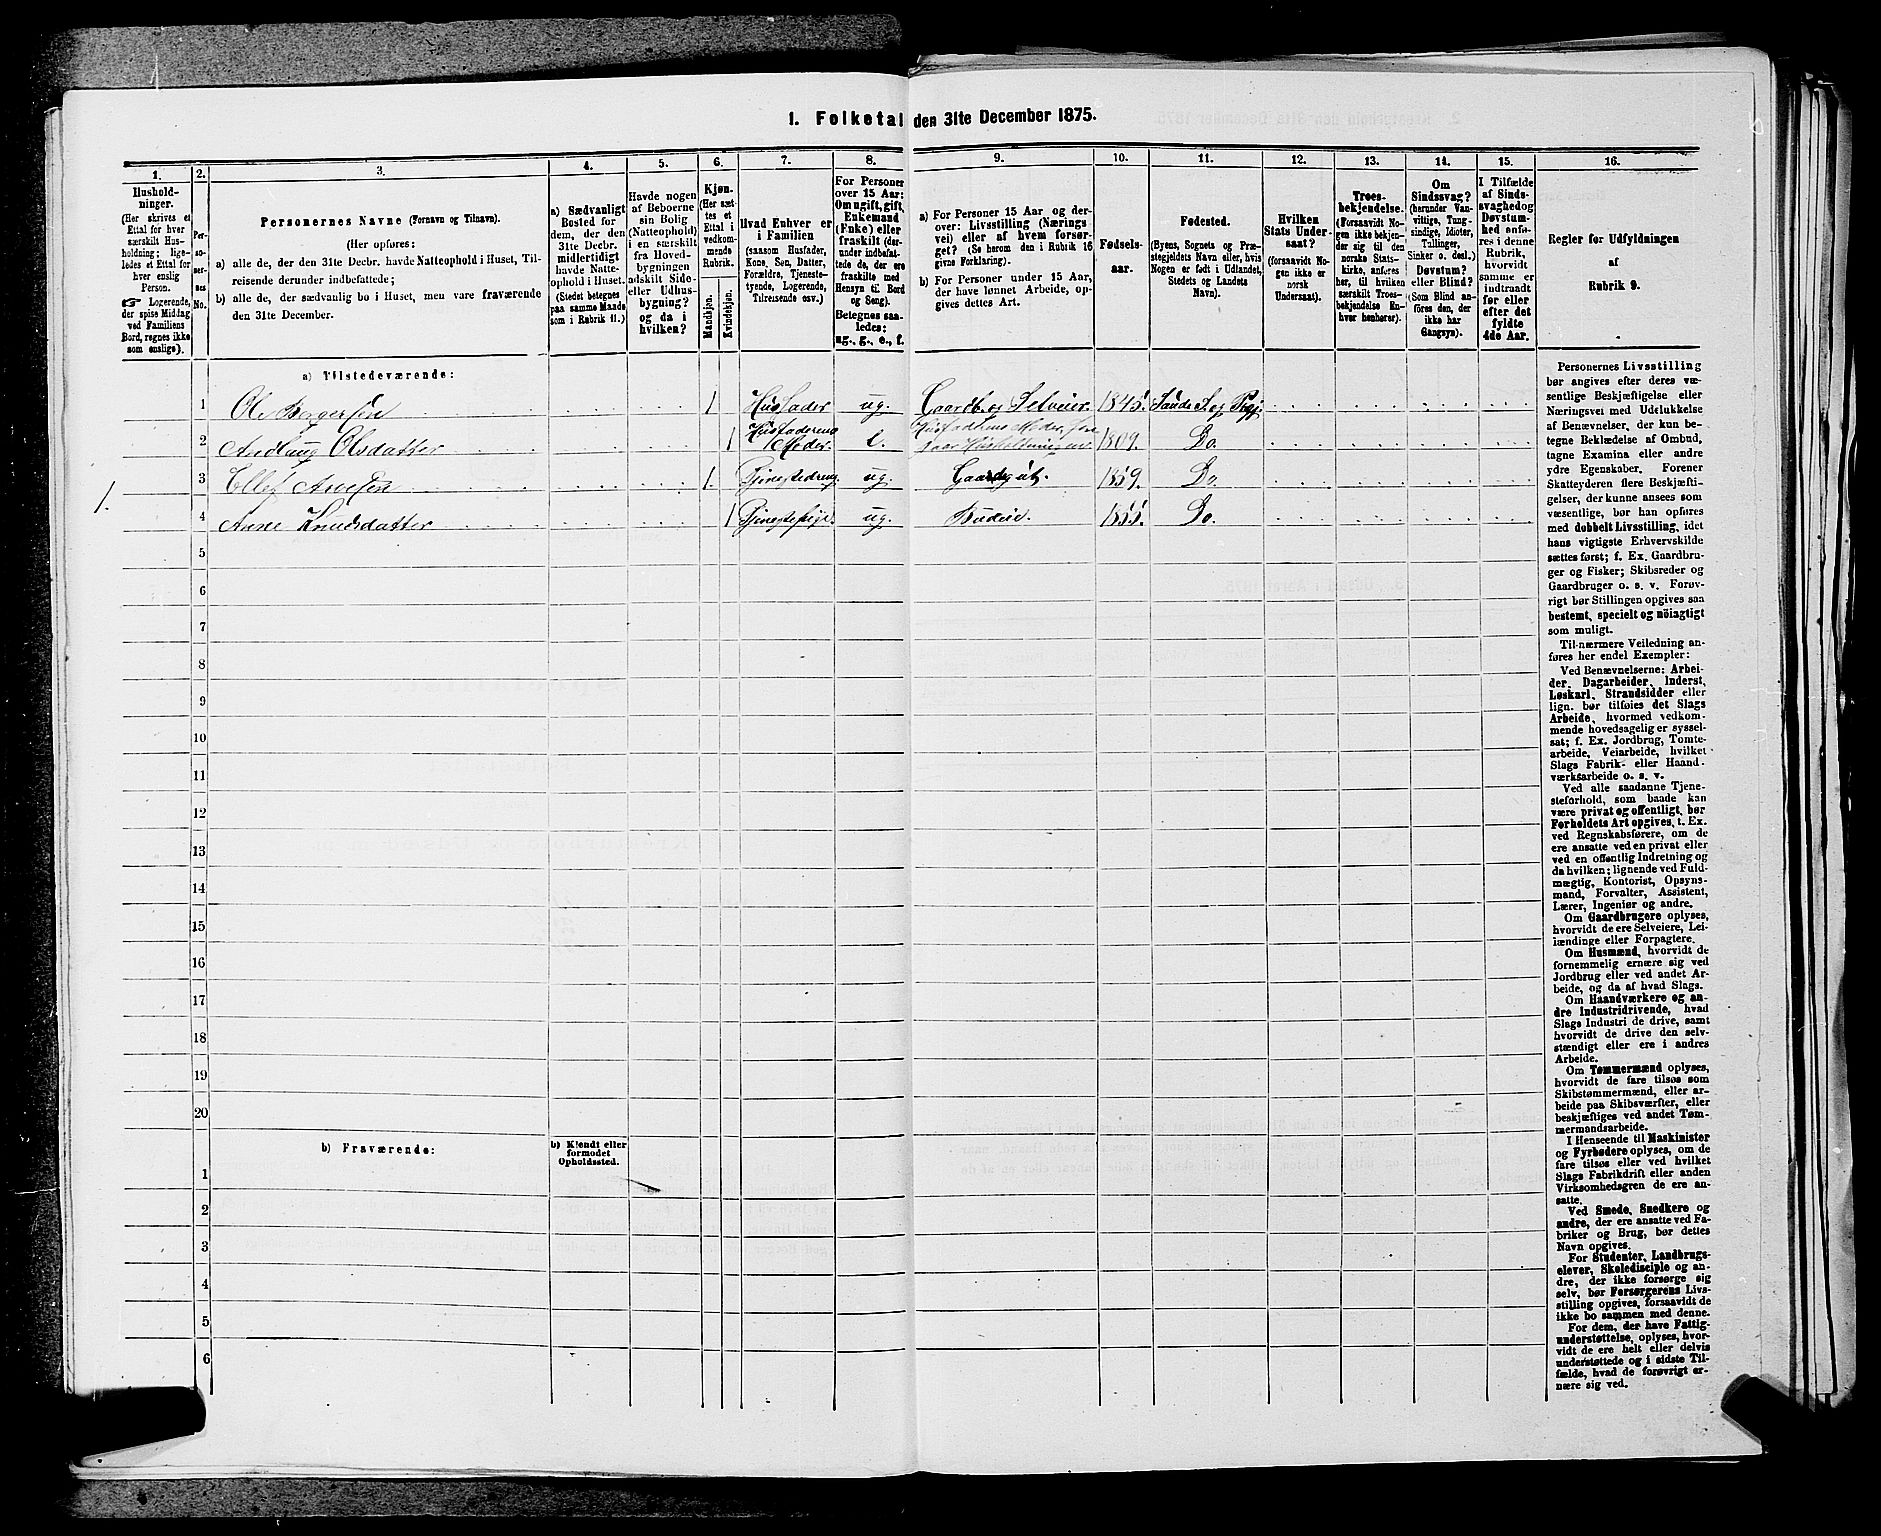 1. Folketal den 31te December 1875.
1.
Hushold-
ninger.
(Her skrives et
Ettal for hver
særskilt Hus-
holdning; lige-
ledes et Ettal for
hver enslig
Person.
Logerende,
der spise Middag
ved Familiens
Bord, regnes ikke
som enslige).
2.
Per-
soner-
nes
No.
3.
Personernes Navne (Fornavn og Tilnavn).
(Her opføres:
a) alle de, der den 31te Decbr. havde Natteophold i Huset, Til-
reisende derunder indbefattede;
b) alle de, der sædvanlig bo i Huset, men vare fraværende
den 31te December.
4.
a) Sædvanligt
Bosted for
dem, der den
31te Decbr.
midlertidigt
havde Natte-
ophold i Huset.
(Stedet betegnes
paa samme Maade
som i Rubrik 11.)
5.
Havde nogen
af Beboerne
sin Bolig
(Natteophold)
i en særskilt
fra Hoved-
bygningen
adskilt Side-
eller Udhus-
bygning?
og da i
hvilken?
6.
Kjøn.
(Her sæt-
tes et
Ettal i
vedkom-
mende
Rubrik.
Mandkjøn.
Kvindekjøn.
7.
Hvad Enhver er
i Familien
(saasom Husfader,
Kone, Søn, Datter,
Forældre, Tjeneste-
tyende, Logerende,
Tilreisende osv.)
8.
For Personer
over 15 Aar:
Om ugift, gift,
Enkemand
(Enke) eller
fraskilt (der-
under indbefat-
tede de, der ere
fraskilte med
Hensyn til Bord
og Seng).
Betegnes saa-
ledes:
ug., g., e., f.
9.
a) For Personer 15 Aar og der-
over: Livsstilling (Nærings-
vei) eller af hvem forsør-
get? (Se herom den i Rubrik 16
givne Forklaring).
b) For Personer under 15 Aar,
der have lønnet Arbeide, op-
gives dettes Art.
10.
Fødsels-
aar.
11.
Fødested.
(Byens, Sognets og Præ-
stegjeldets Navn eller, hvis
Nogen er født i Udlandet,
Stedets og Landets
Navn).
12.
Hvilken
Stats Under-
saat?
(forsaavidt No-
gen ikke er
norsk
Undersaat).
13.
Troes-
bekjendelse.
(Forsaavidt No-
gen ikke bekjen-
der sig til den
norske Stats-
kirke, anføres
her, til hvilken
særskilt Troes-
bekjendelse En-
hver henhører).
14.
Om
Sindssvag?
(herunder Van-
vittige, Tung-
sindige, Idioter,
Tullinger,
Sinker o. desl.)
Døvstum?
eller Blind?
(Som Blind an-
føres den, der
ikke har
Gangsyn).
15.
I Tilfælde
af Sinds-
svaghed og
Døvstum-
hed anfø-
res i denne
Rubrik,
hvorvidt
samme er
indtraadt
før eller
efter det
fyldte
4de Aar.
16.
Regler for Udfyldningen
af
Rubrik 9.
a) Tilstedeværende:
1 Ole Bergersen 1 Husfader ug. Gaardb. og Selveier. 1845. Sande S. og Pgj.
2 Andlaug Olsdatter 1 Husfaderens Moder. e. Husfaderens Moder, 1809. Do.
3 Ellef Aresen 1. Tjenestedreng ug. Gaardsgut. 1859. Do.
1.
4 Anne Knudsdatter 1 Tjenestepige. ug. Budeie. 1855. Do.
5
6
7
8
9
10
11
12
13
14
15
16
17
18
19
20
b) Fraværende:
b) Kjendt eller
formodet
Opholdssted.
1
2
3
4
5
6
Personernes Livsstilling
bør angives efter deres væ-
sentlige Beskjæftigelse eller
Næringsvei med Udelukkelse
af Benævnelser, der kun be-
tegne Bekldædelse af Ombud,
tagne Examina eller andre
ydre Egenskaber. Forener
Skatteyderen flere Beskjæfti-
gelser, der kunne ansees som
væsentlige, bør han opføres
med dobbelt Livsstilling, idet
hans vigtigste Erhvervskilde
sættes først; f. Ex. Gaardbru-
ger og Fisker; Skibsreder og
Gaardbruger o. s. v. Forøv-
rigt bør Stillingen opgives saa
bestemt, specielt og nöiagtigt
som muligt.
Til nærmere Veiledning an-
føres her endel Exempler:
Ved Benævnelserne: Arbei-
der, Dagarbeider, Inderst,
Løskarl, Strandsidder eller
lign. bør tilføies det Slags
Arbeide, hvormed vedkom-
mende hovedsagelig er syssel-
sat; f. Ex. Jordbrug, Tomte-
arbeide, Veiarbeide, hvilket
Slags Fabrik- eller Haand-
værksarbeide o. s. v.
Ved alle saadanne Tjene-
steforhold, som baade kan
være privat og offentligt, bør
Forholdets Art opgives, t. Ex.
ved Regnskabsførere, om de
ere ansatte ved en privat eller
ved en offentlig Indretning og
da hvilken; lignende ved Fuld-
mægtig, Kontorist, Opsyns-
mand, Forvalter, Assistent,
Lærer, Ingeniør og andre.
Om Gaardbrugere oplyses,
hvorvidt de ere Selveiere, Lei-
lændinge eller Forpagtere.
Om Husmænd, hvorvidt de
fornemmelig ernære sig ved
Jordbrug eller ved andet Ar-
beide, og da af hvad Slags.
Om Haandværkere og an-
dre Industridrivende, hvad
Slags Industri de drive, samt
hvorvidt de drive den selv-
stændigt eller ere i andres
Arbeide.
Om Tømmermænd oplyses,
hvorvidt de fare tilsøs som
Skibstømmermænd, eller ar-
beide paa Skibsværfter, eller
beskjæftiges ved andet Tøm-
mermandsarbeide.
I Henseende til Maskinister
og Fyrbødere oplyses, om de
fare tilsøs eller ved hvilket
Slags Fabrikdrift eller anden
Virksomhedsgren de ere an-
satte.
Ved Smede, Snedkere og
andre, der ere ansatte ved Fa-
briker og Brug, bør dettes
Navn opgives.
For Studenter, Landbrugs-
elever, Skoledisciple og an-
dre, der ikke forsørge sig
selv, bør Forsørgerens Livs-
stilling opgives, forsaavidt de
ikke bo sammen med denne.
For dem, der have Fattig-
understøttelse, oplyses, hvor-
vidt de ere helt eller delvis
understøttede og i sidste Til-
fælde, hvad de forøvrigt er-
nære sig ved.